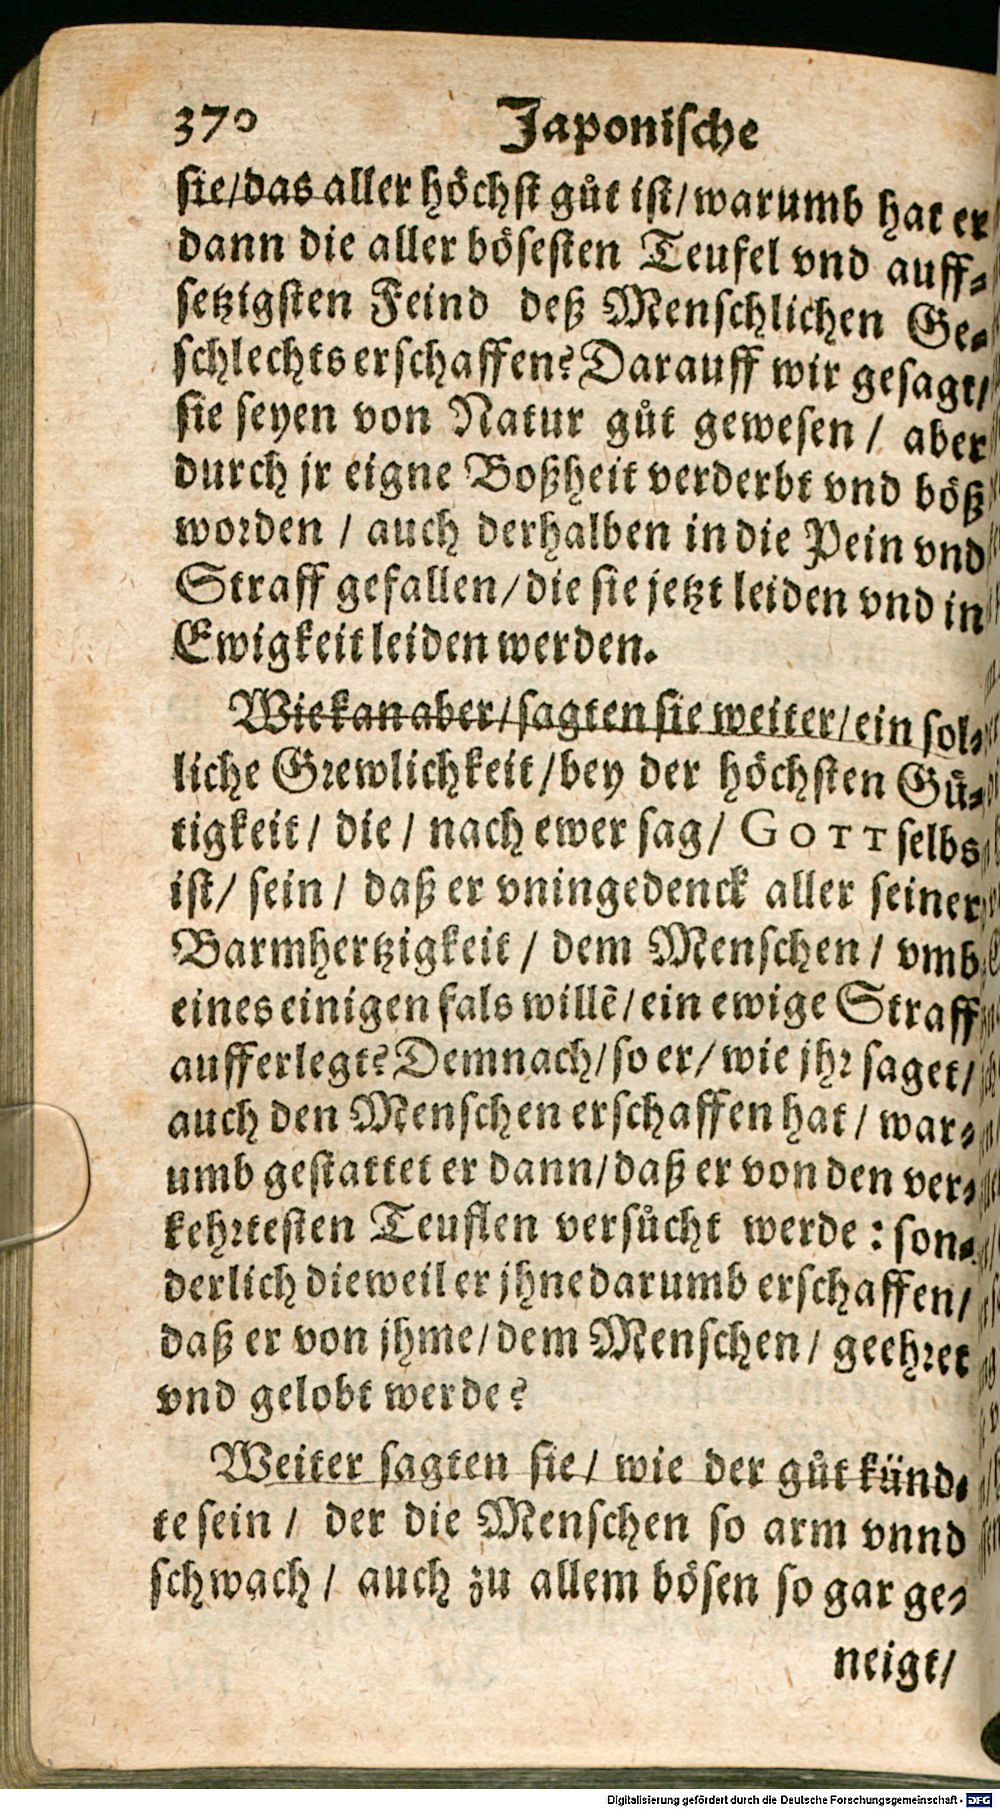 370 Japonische
sie/das aller höchst gůt ist/warumb hat er
dann die aller bösesten Teufel vnd auff-
setzigsten Feind deß Menschlichen Ge-
schlechts erschaffen? Darauff wir gesagt/
sie seyen von Natur gůt gewesen / aber
durch jr eigne Boßheit verderbt vnd böß
worden / auch derhalben in die Pein vnd
Straff gefallen/die sie jetzt leiden vnd in
Ewigkeit leiden werden.
Wie kan aber/sagten sie weiter/ein sol-
liche Grewlichkeit/bey der höchsten Gü-
tigkeit/ die/ nach ewer sag/ GOTT selbs
ist/ sein/ daß er vningedenck aller seiner
Barmhertzigkeit / dem Menschen / vmb
eines einigen fals willẽ/ein ewige Straff
aufferlegt? Demnach/so er/wie jhr saget/
auch den Menschen erschaffen hat/ war-
umb gestattet er dann/daß er von den ver-
kehrtesten Teuflen versůcht werde : son-
derlich dieweil er jhne darumb erschaffen/
daß er von jhme/dem Menschen/ geehret
vnd gelobt werde?
Weiter sagten sie/ wie der gůt künd-
te sein / der die Menschen so arm vnnd
schwach / auch zu allem bösen so gar ge-
neigt/
Digitalisierung gefördert durch die Deutsche Forschungsgemeinschaft - DFG